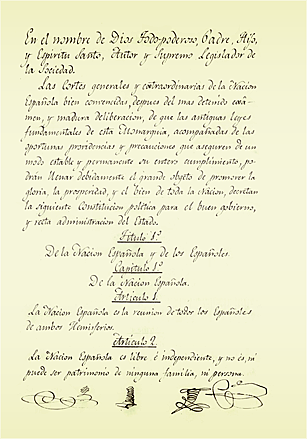 En el nombre de Dios Todo-poderoso, Padre, Hijo,
y Espíritu Santo, Autor y Supremo Legislador de
la Sociedad.
Las Cortes generales y extraordinarias de la Nacion
Española bien convencidas, despues del mas detenido exâ-
men, y madura deliberacion, de que las antiguas leyes
fundamentales de esta Monarquia, acompañadas de las
oportunas providencias y precauciones que aseguren de un
modo estable y permanente su entero cumplimiento, po-
drán llenar debidamente el grande objeto de promover la
gloria, la prosperidad, y el bien de toda la Nacion, decretan
la siguiente Constitucion politica para el buen gobierno,
y recta administracion del Estado.
Titulo 1.º
De la Nacion Española y de los Españoles.
Capitulo 1.º
De la Nacion Española.
Articulo 1.
La Nacion Española es la reunion de todos los Españoles
de ambos Hemisferios.
Articulo 2.
La Nacion Española es libre é independiente, y no es, ni
puede ser patrimonio de ninguna familia, ni persona.